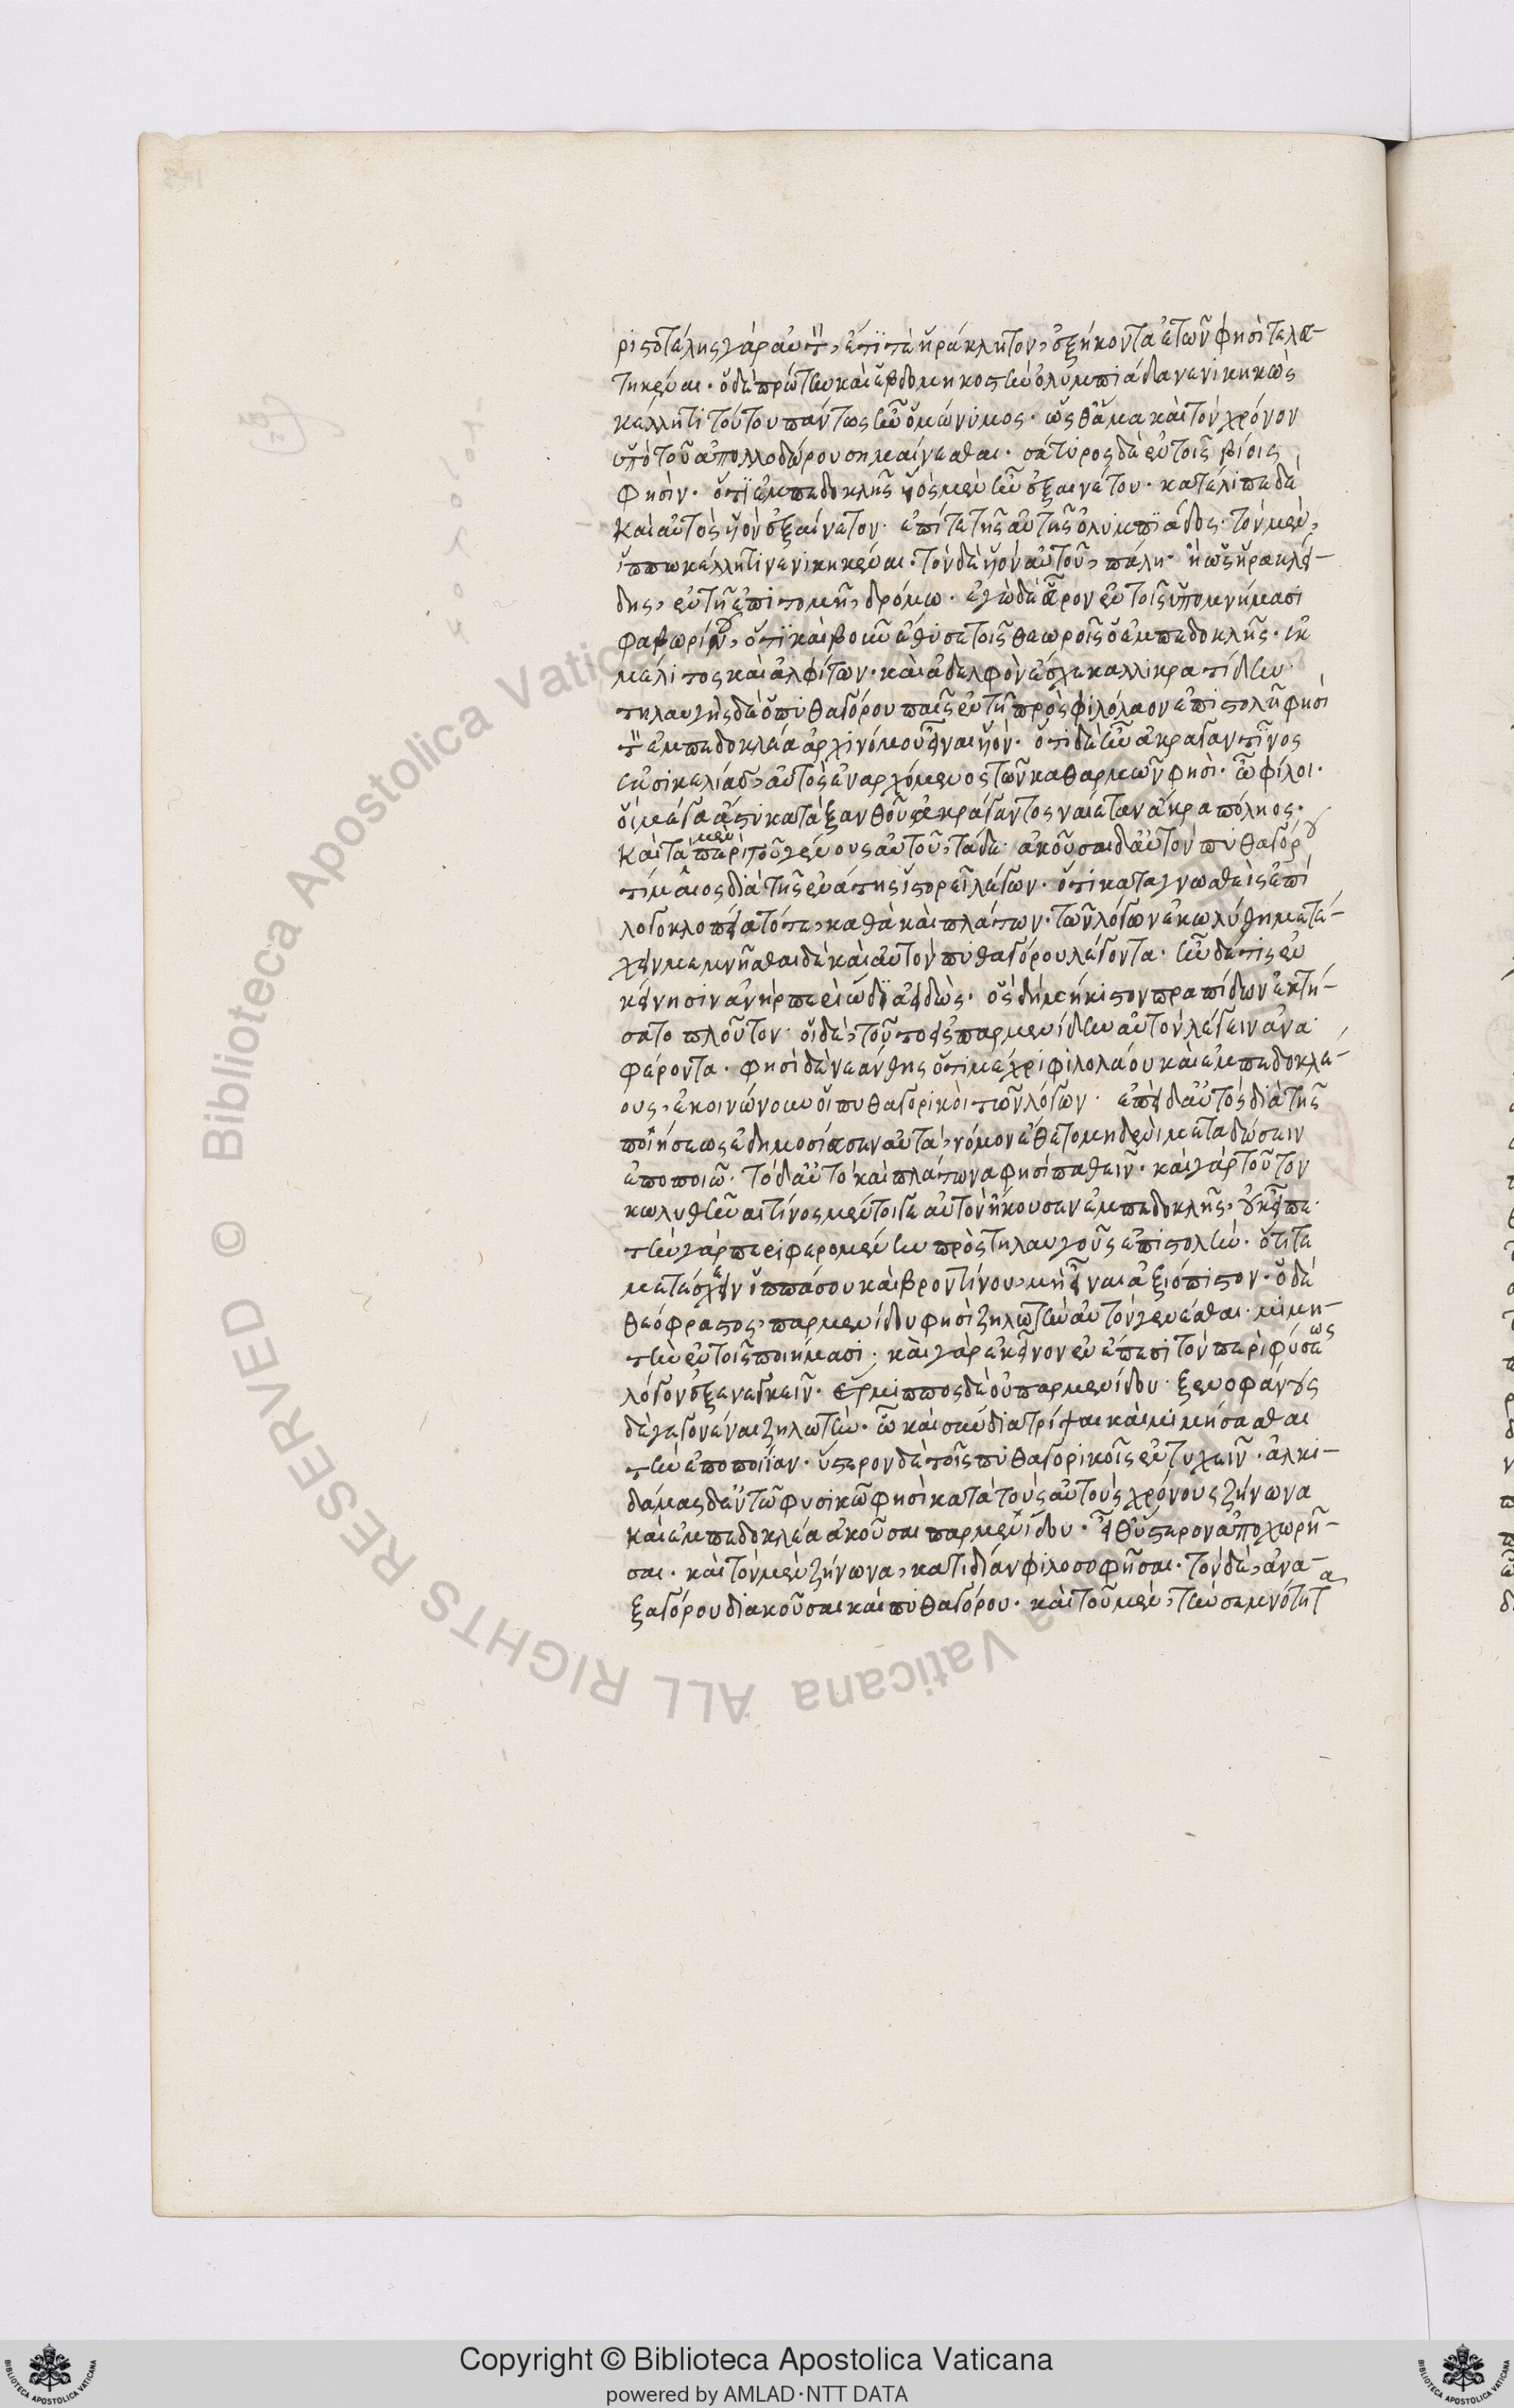 ριστοτέλης γὰρ αὐτὸν, ἔτι τὲ ἡράκλητον, ἑξήκοντα ἐτῶν φησὶ τελε-
τηκέναι. ὁ δὲ πρώτην καὶ ἑβδομηκοστὴν ὀλυμπιάδα νενικηκὼς
κέλλητι τούτου πάντως ἦν ὁμώνυμος. ὥσθ' ἅμα καὶ τὸν χρόνον
ὑπὸ τοῦ ἀπολλοδώρου σημαίνεσθαι. σάτυρος δὲ ἐν τοῖς βίοις
φησὶν. ὅτι ἐμπεδοκλῆς υἱὸς μὲν ἦν ἐξαινέτου. κατέλιπε δὲ
καὶ αὐτὸς υἱὸν ἐξαίνετον. ἐπί τε τῆς αὐτῆς ὀλυμπιάδος. τὸν μὲν,
ἵππω κέλλητι νενικηκέναι. τὸν δὲ υἱὸν αὐτοῦ, πάλη. ἢ ὡς ἡρακλεί-
δης, ἐν τῆ ἐπιτομῆ, δρόμω. ἐγὼ δὲ εὗρον ἐν τοῖς ὑπομνήμασι
φαβωρίνου, ὅτι καὶ βοῦν ἔθυσε τοῖς θεωροῖς ὁ ἐμπεδοκλῆς. ἐκ
μέλιτος καὶ ἀλφίτων. καὶ ἀδελφὸν ἔσχε καλλικρατίδην.
τηλαυγὴς δὲ ὁ πυθαγόρου παῖς ἐν τῆ πρὸς φιλόλαον ἐπιστολῆ φησὶ
τὸν ἐμπεδοκλέα ἀρχινόμου εἶναι υἱόν. ὅτι δὲ ἦν ἀκραγαντῖνος
ἐκ σικελίας, αὐτὸς ἐναρχόμενος τῶν καθαρμῶν φησὶ. ὦ φίλοι.
οἳ μέγα ἄστυ κατὰ ξανθοῦ ἀκράγαντος ναίετ' ἀν' ἄκρα πόληος.
καὶ τὰ μὲν περὶ τοῦ γένους αὐτοῦ, τάδε. ἀκοῦσαι δ' αὐτὸν πυθαγόρου
τίμαιος διὰ τῆς ἐνάτης ἱστορεῖ λέγων. ὅτι καταγνωσθεὶς ἐπὶ
λογοκλοπεία τότε, καθὰ καὶ πλάτων. τῶν λόγων ἐκωλύθη μετέ-
χειν μεμνῆσθαι δὲ καὶ αὐτὸν πυθαγόρου λέγοντα. ἦν δέ τις ἐν
κείνησιν ἀνὴρ περιώδια εἰδὼς. ὃς δὴ μήκιστον πραπίδων ἐκτή-
σατο πλοῦτον. οἱ δὲ, τοῦτο εἰς παρμενίδην αὐτὸν λέγειν ἀνα
φέροντα. φησὶ δὲ νεάνθης ὅτι μέχρι φιλολάου καὶ ἐμπεδοκλέ-
ους, ἐκοινώνουν οἱ πυθαγορικοὶ τῶν λόγων. ἐπεὶ δ' αὐτὸς διὰ τῆς
ποιήσεως ἐδημοσίασεν αὐτὰ, νόμον ἔθετο μηδενὶ μεταδώσειν
ἐποποιῶ. τὸ δ' αὐτὸ καὶ πλάτωνα φησὶ παθεῖν. καὶ γὰρ τοῦτον
κωλυθῆναι τίνος μέντοι γε αὐτὸν ἤκουσεν ἐμπεδοκλῆς, οὐκ εἶπε.
τὴν γὰρ περιφερομένην πρὸς τηλαυγοῦς ἐπιστολὴν. ὅτι τε
μετέσχεν ἱππάσου καὶ βροντίνου, μὴ εἶναι ἀξιόπιστον. ὁ δὲ
θεόφραστος, παρμενίδου φησὶ ζηλωτὴν αὐτὸν γενέσθαι. μιμη-
τὴν ἐν τοῖς ποιήμασι. καὶ γὰρ ἐκεῖνον ἐν ἔπεσι τὸν περὶ φύσεως
λόγον ἐξενεγκεῖν. ἕρμιππος δὲ οὐ παρμενίδου. ξενοφάνους
δὲ γεγονέναι ζηλωτὴν. ὧ καὶ συνδιατρίψαι καὶ μιμήσασθαι
τὴν ἐποποιΐαν. ὕστερον δὲ τοῖς πυθαγορικοῖς ἐντυχεῖν. ἀλκι-
δάμας δ' ἐν τῶ φυσικῶ φησὶ κατὰ τοὺς αὐτοὺς χρόνους ζήνωνα
καὶ ἐμπεδοκλέα ἀκοῦσαι παρμενίδου. εἶθ' ὕστερον ἀποχωρῆ-
σαι. καὶ τὸν μὲν ζήνωνα, κατ' ἰδίαν φιλοσοφῆσαι. τὸν δὲ, ἀνα-
ξαγόρου διακοῦσαι καὶ πυθαγόρου. καὶ τοῦ μὲν, τὴν σεμνότητα
Copyright © Biblioteca Apostolica Vaticana
powered by AMLAD·NTT DATA